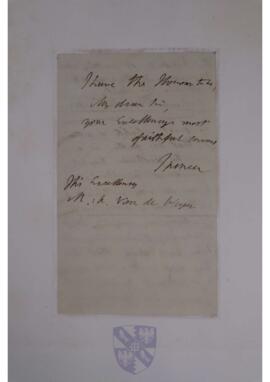 I have the Honour to be,
My dear Sir,
your Excellency's most
faithful servant
Spencer
His Excellency
M. Van de Weyer